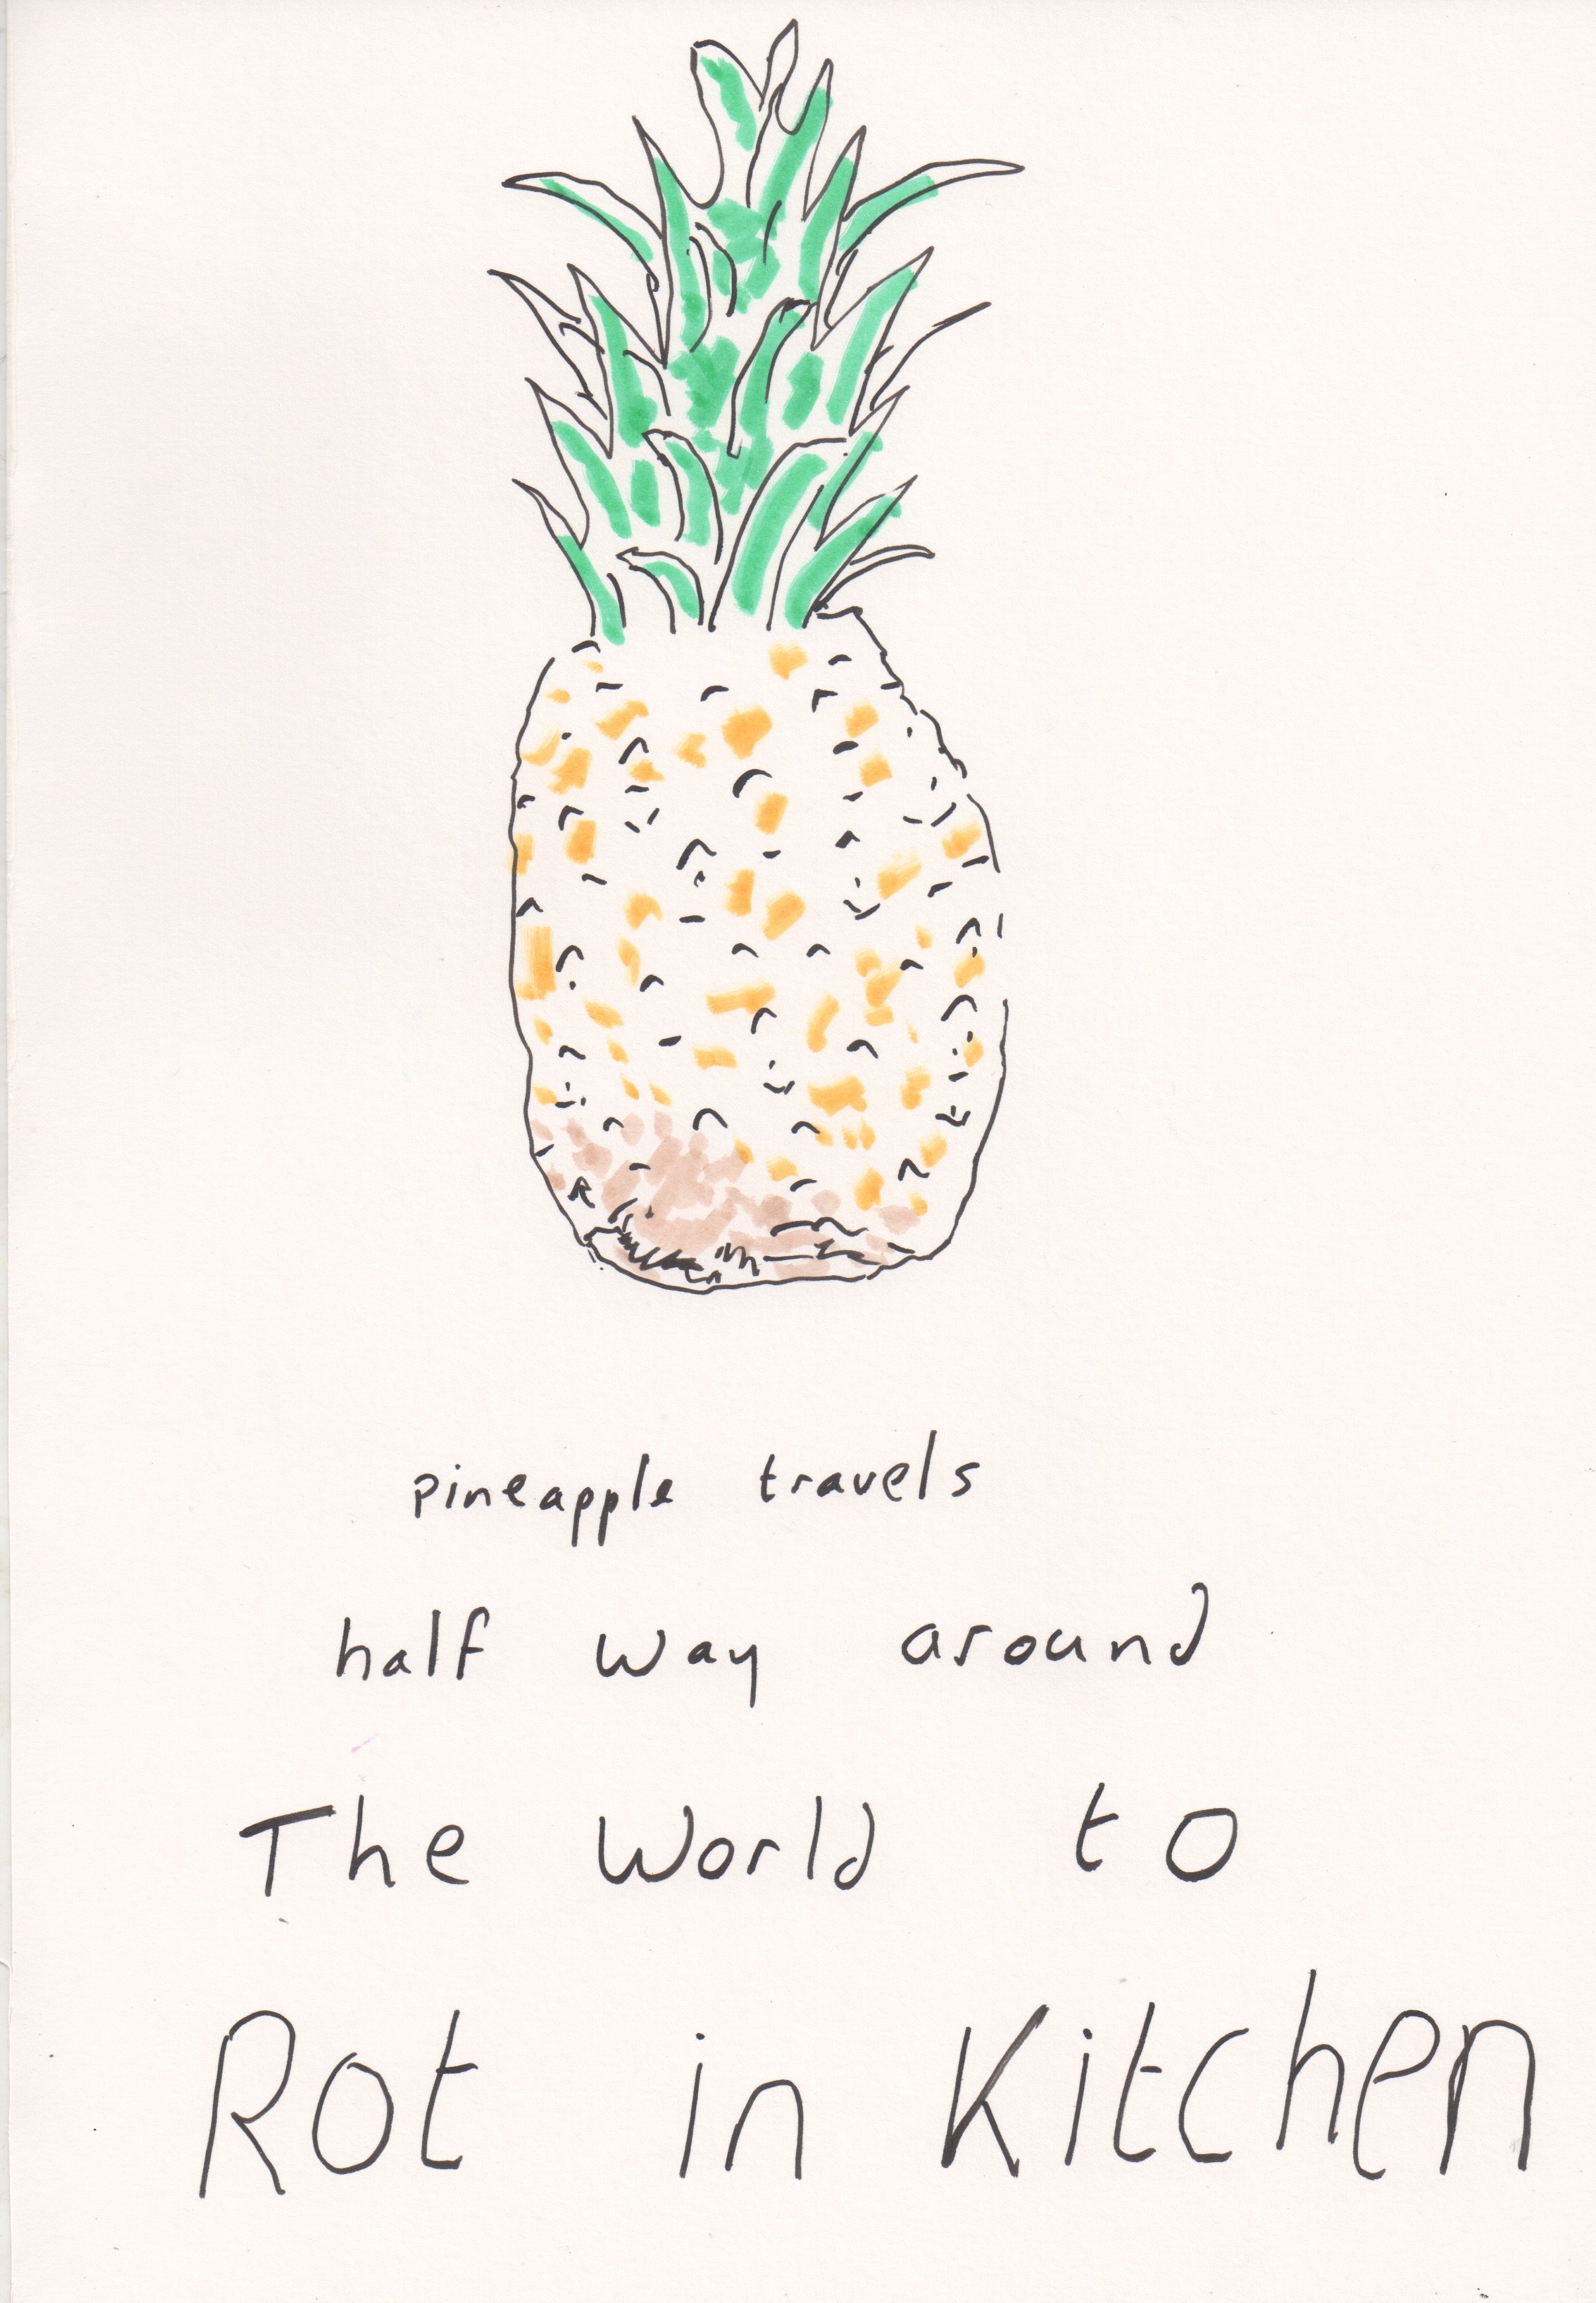 pineapple travels
half way around
The World to
Rot in Kitchen